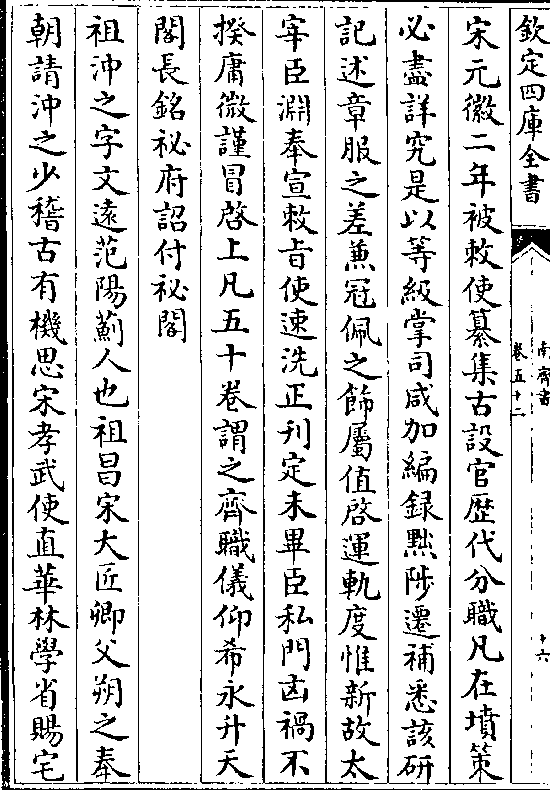 欽定四庫全書
南齊書
卷五十二
十六
宋元徽二年被敕使纂集古設官歷代分職凡在墳策
必盡詳究是以等級掌司咸加編録黜陟遷補悉該研
記述章服之差兼冠佩之飾屬值啓運軌度惟新故太
宰臣淵奉宣敕旨使速洗正刊定未畢臣私門凶禍不
揆庸微謹冒啓上凡五十卷謂之齊職儀仰希永升天
閣長銘祕府詔付祕閣
祖沖之字文遠范陽薊人也祖昌宋大匠卿父朔之奉
朝請沖之少稽古有機思宋孝武使直華林學省賜宅